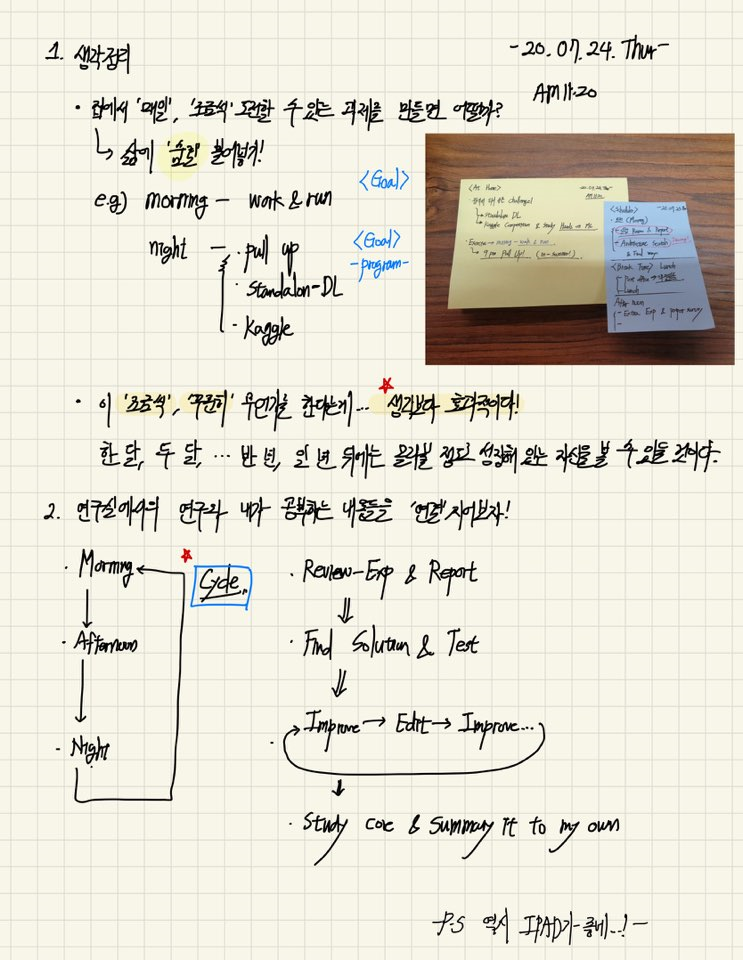 1. 생각정리
- 20. 07. 24. Thur -
AM 11.20
· 집에서 '매일', '조금씩' 도전할 수 있는 과제를 만들면 어떨까?
↳ 삶에 '습관' 불어넣기!
e.g) morning - work & run <Goal>
night - · pull up <Goal>
- program -
· Standalon-DL
· Kaggle
<At Home>
- Standalon DL
- Kaggle Competition & study Hands on ML
· Exercise - morning - work & run
<Break Time> Lunch
Lunch
After noon
- Extra Exp & paper survey
· 이 '조금씩', '꾸준히' 무언가를 한다는게... 생각보다 효과적이다!
한 달, 두 달, ... 반 년, 일 년 뒤에는 몰라볼 정도로 성장해 있는 자신을 볼 수 있을 것이다.
2. 연구실에서의 연구와 내가 공부하는 내용들을 '연결' 지어보자!
· Morning
Cycle..
· Afternoon
· Night
· Review-Exp & Report
· Find Solution & Test
· Improve → Edit → Improve...
· Study core & Summary it to my own
- P.S 역시 IPAD가 좋네...! -